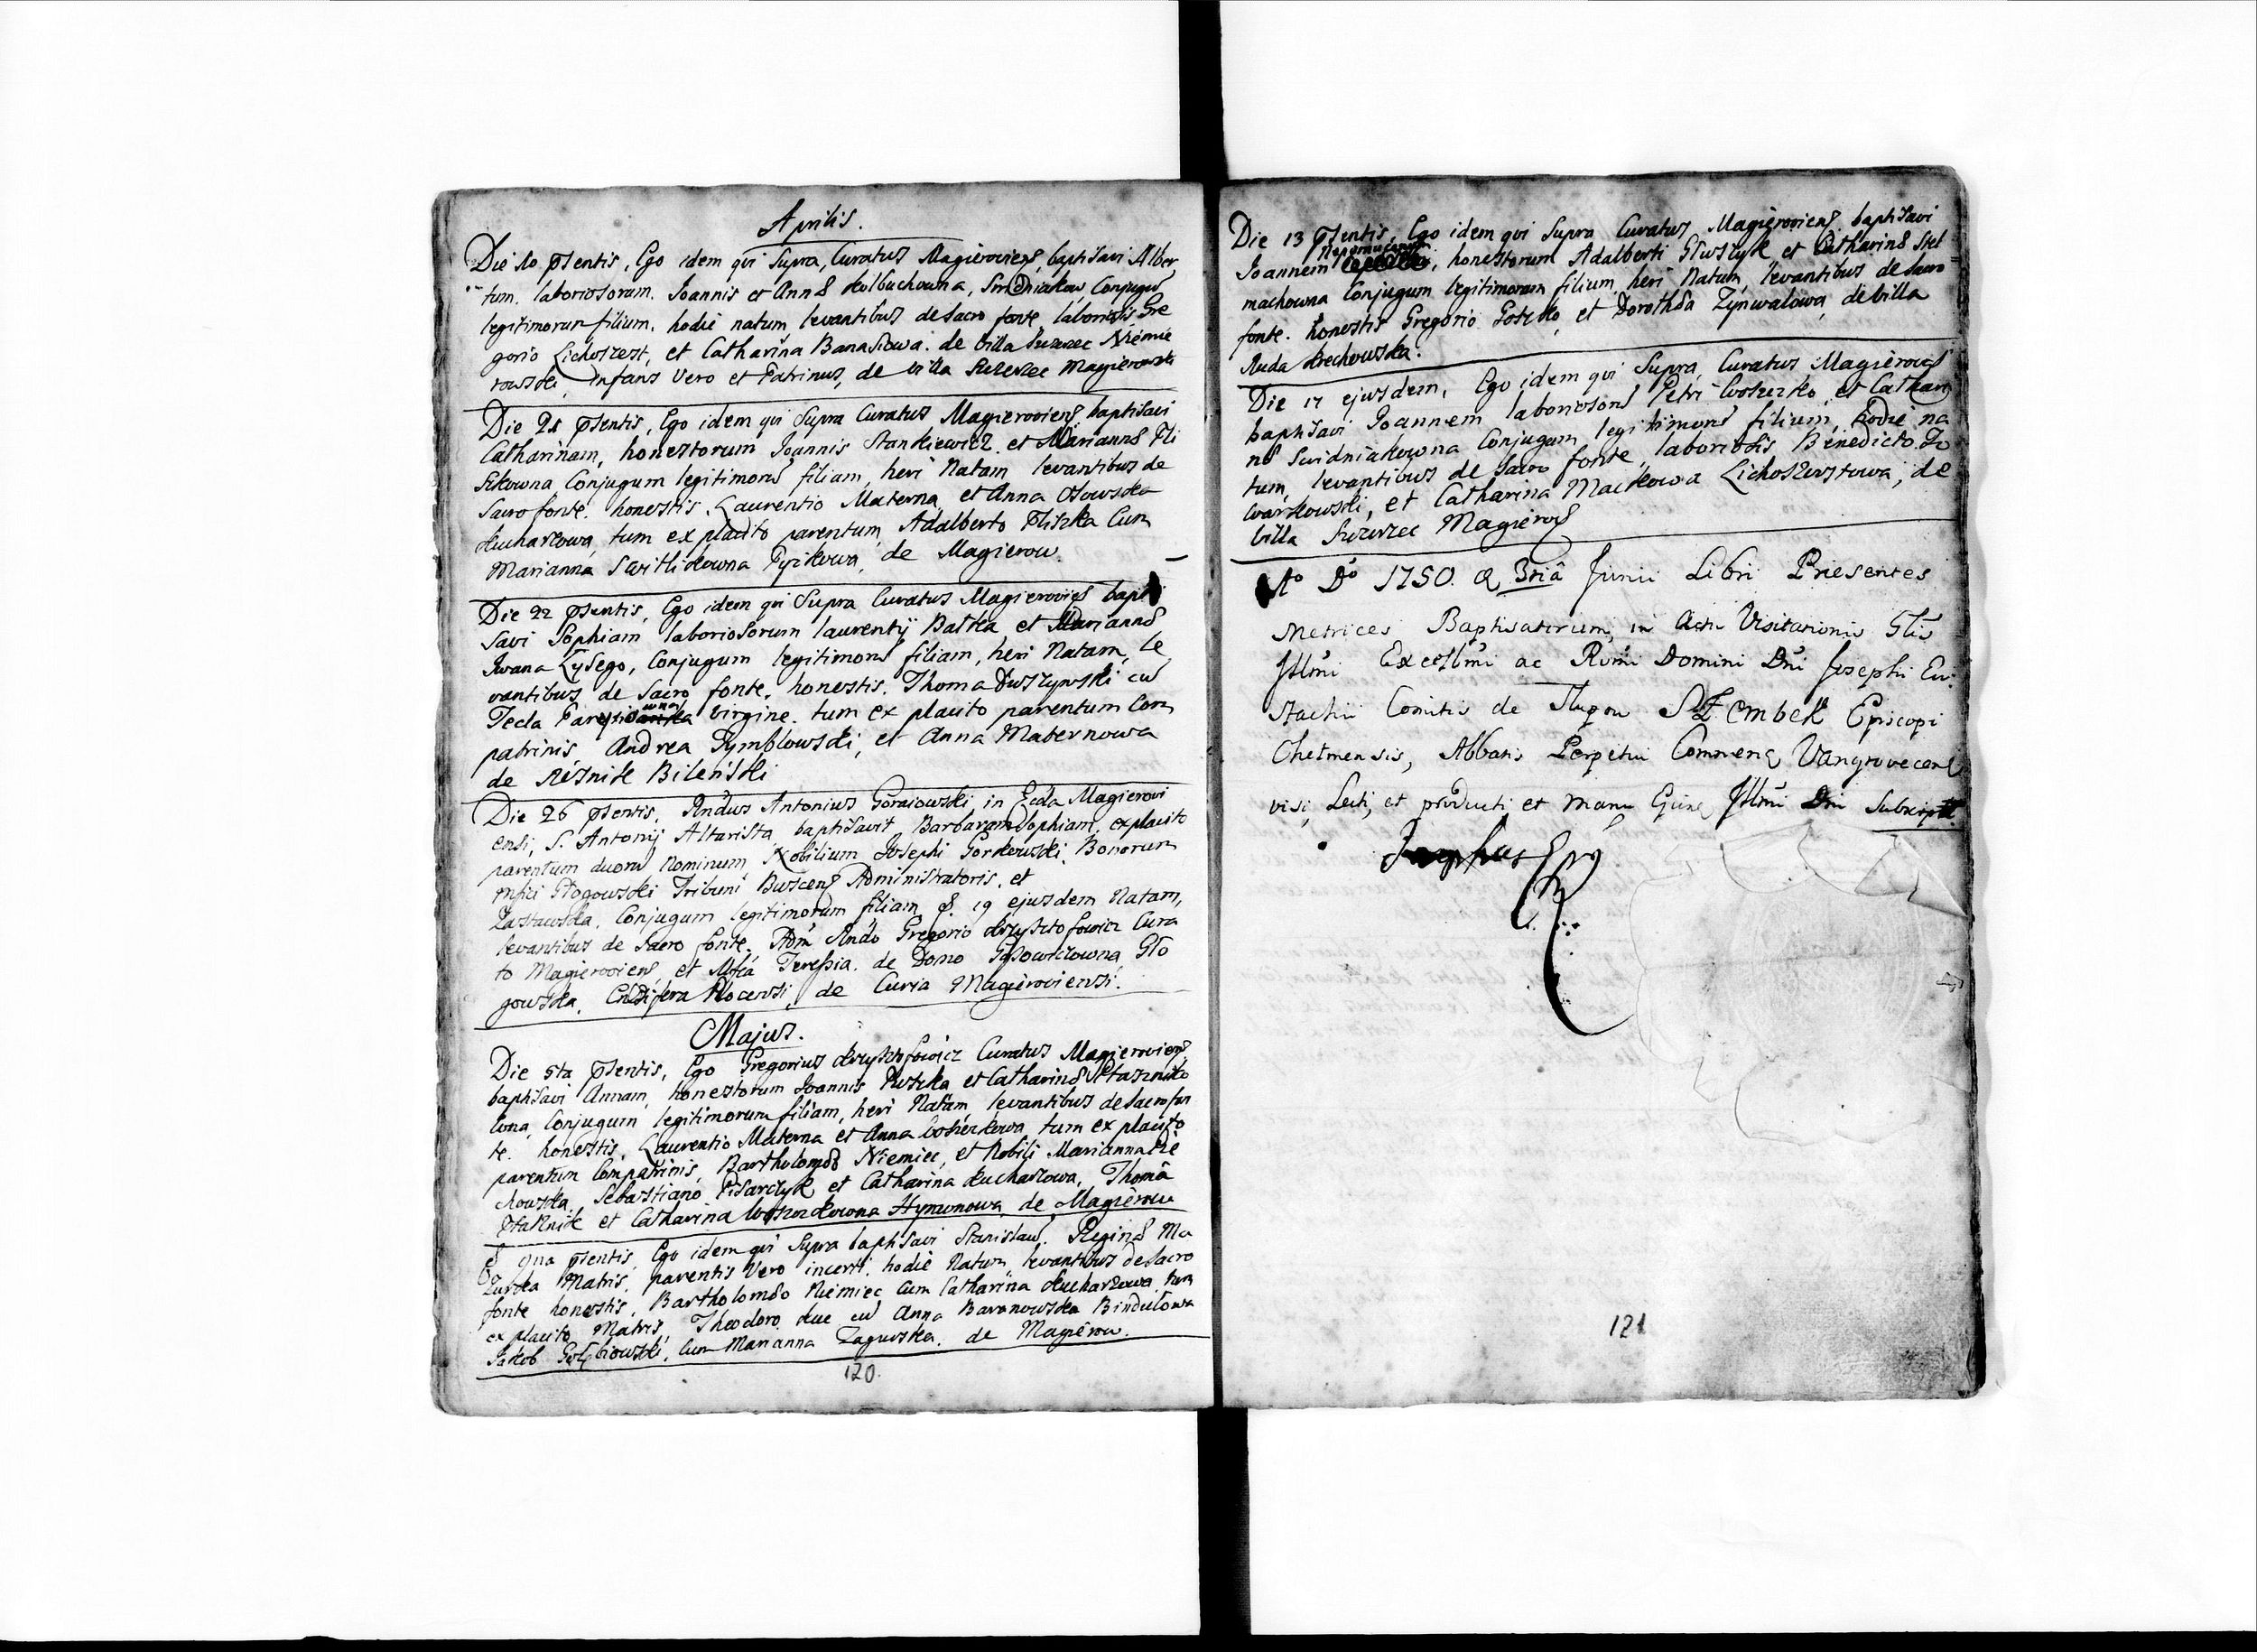 Aprilis.
Die 10 psentis, Ego idem qui Supra, Curatus Magieroviens, baptisavi Alber
tum. laboriosorum. Joannis et Annæ Kolbuchowna, Conjugum
legitimorum filium. hodie natum, levantibus de Sacro fonte, laboriosis Gre
gorio Lichoszerst, et Catharina Banasiowa. de villa Szczerzec Niemie
rowski, Infans Vero et Patrinus, de villa Szczerzec Magierowski
Die 21 psentis, Ego idem qui Supra Curatus Magierowiens baptisavi
Catharinam, honestorum Joannis Stankiewicz et Mariannæ Fli
szkowna Conjugum legitimoru filiam, heri Natam levantibus de
Sacro fonte. honestis. Laurentio Materna, et Anna Osowska
Kucharzowa, tum ex placito parentum, Adalberto Fliszka Cum
Marianna Pyzikowa, de Magierow.
Die 22 psentis, Ego idem qui Supra Curatus Magierovies bapti
savi Sophiam laboriosorum laurentij Batka, et Mariannæ
Iwana Łysego, Conjugum legitimoru filiam, heri Natam, le
vantibus de Sacro fonte, honestis. Thoma Duszynski cu
Tecla owna virgine. tum ex placito parentum Com
patrinis Andrea Pymblowski, et Anna Maternowa
de Réznik Bileński
Die 26 psentis, Rndus Antonius Goraiowski, in Eccla Magierovi
ensi, S. Antonij Altarista, baptisavit Barbaram Sophiam, ex placito
parentum duoru Nominum, Nobilium Josephi Gorkowski, Bonorum
Mfici Głogowski Tribuni Buscens Administratoris, et
Zastawska, Conjugum legitimorum filiam, d. 19 ejusdem Natam,
levantibus de Sacro fonte. Adm Rndo Gregorio Krzysztofowicz Cura
to Magierowiens, et Mfca Teressia. de Domo Gło
gowska, Ensifera Plocensi, de Curia Magieroviensi.
Majus.
Die 5ta psentis, Ego Gregorius Krzysztofowicz Curatus Magieroviens
baptisavi Annam, honestorum Joannis Puszka et Catharinæ Ptaszniko
wna, Conjugum legitimorum filiam, heri Natam, levantibus de Sacro fon
te. honestis, Laurentio Materna et Anna Woszczkowa, tum ex placito
parentum Compatrinis, Bartholomæo Niemiec, et Nobili Marianna Ze
chowska, Sebastiano Pisarczyk et Catharina Kucharzowa, Thoma
Ptasznik et Catharina Hymonowa, de Magierow
D 9na psentis, Ego idem qui Supra baptisavi Stanislau. Reginæ Ma
zurska Matris, parentis Vero incerti. hodie Natum, levantibus de Sacro
fonte honestis, Bartholomæo Niemiec Cum Catharina Kucharzowa, tum
ex placito Matris, Theodoro Kuc cu Anna Baranowska Bindulowa
Jakob Gołębiowski, Cum Marianna Zagurska. de Magierow.
120.
Die 13 psentis, Ego idem qui Supra Curatus Magieroviens, baptisavi
Joannem Nepomucenum, honestorum Adalberti Głuszyk et Catharinæ Stel
machowna Conjugum legitimorum filium, heri Natum, levantibus de Sacro
fonte. honestis Gregorio Goszko, et Dorothea Zynwalowa, de villa
Ruda Krechowska.
Die 17 ejusdem, Ego idem qui Supra, Curatus Magierovs
baptisavi Joannem laboriosoru Petri Woszczko, et Cathari
næ Swidniakowna Conjugum legitimoru filium, hodie na
tum, levantibus de Sacro fonte, laboriosis Benedicto Zo
warkowski, et Catharina Maćkowa Lichoszerstowa, de
villa Szczerzec Magierovs
Ao Do 1750. d 3tiâ Junii Libri Præsentes
Metrices Baptisatorum, in Actu Visitationis Glis
Illmi Excellmi ac Rvmi Domini Dni Josephi Eu
stachii Comitis de Słupow SZembek Episcopi
Chełmensis, Abbatis Perpetui Commend Vangrovecens
visi, Lecti, et producti et manu Ejusd Illmi Dni Subscripti.
Josephus Eps
121